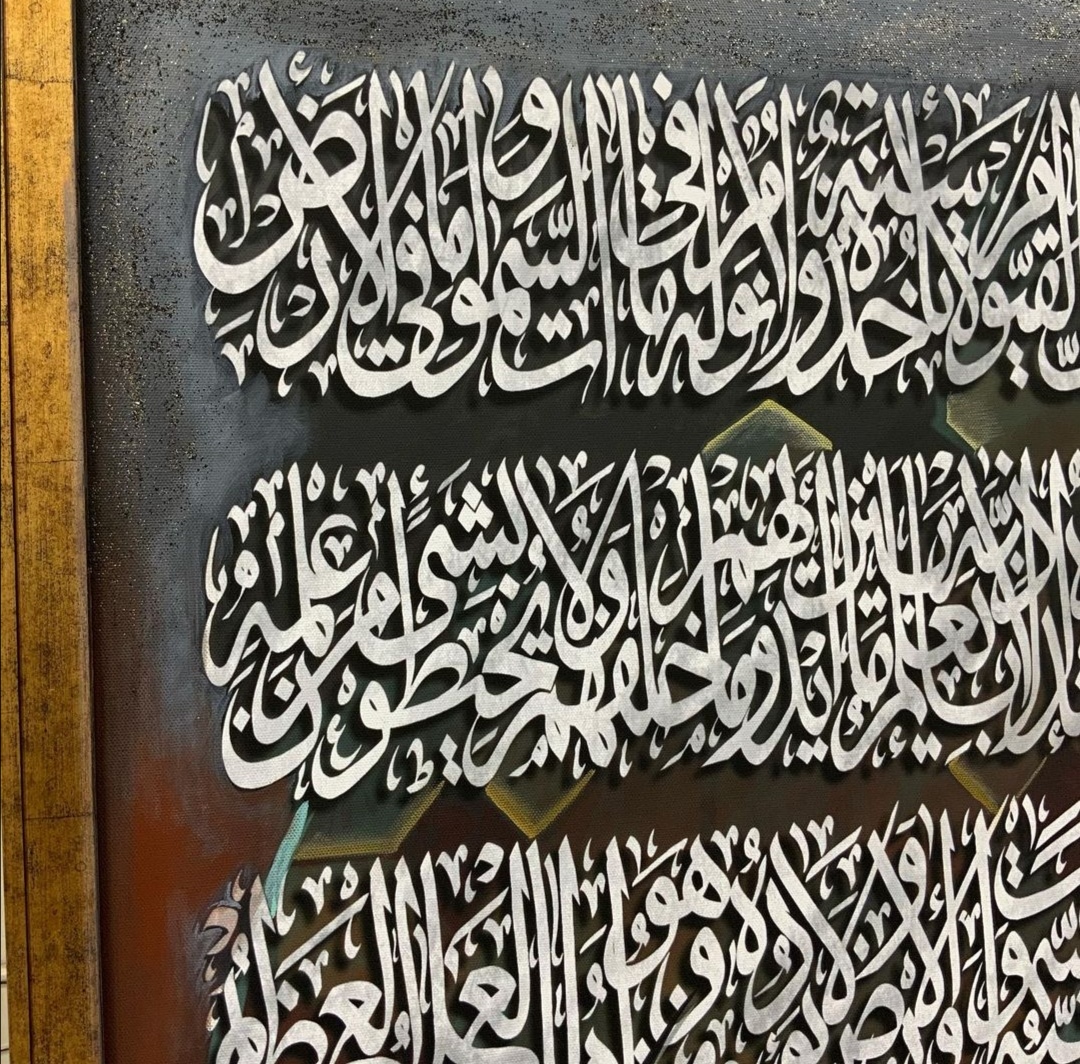 القيوم لا تأخذه سنة ولا نوم له ما في السموت وما في الأرض
إلا بإذنه يعلم ما بين أيديهم وما خلفهم ولا يحيطون بشيء من علمه
السموت والأرض ولا يؤده وهو العلي العظيم